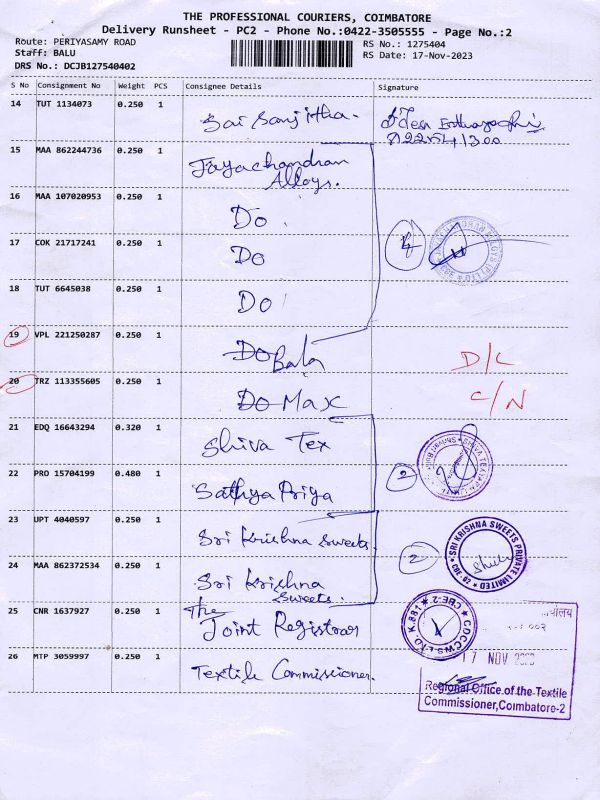 THE PROFESSIONAL COURIERS, COIMBATORE
Delivery Runsheet - PC2 - Phone No.:0422-3505555 - Page No.:2
Route: PERIYASAMY ROAD
RS No.: 1275404
Staff: BALU
RS Date: 17-Nov-2023
DRS No.: DCJB127540402
S No Consignment No Weight PCS Consignee Details Signature
14 TUT 1134073 0.250 1 Sai Sanjitha.
15 MAA 862244736 0.250 1 Jayachandran
Alloys.
16 MAA 107020953 0.250 1 Do
17 COK 21717241 0.250 1 Do
4
18 TUT 6645038 0.250 1 Do
19 VPL 221250287 0.250 1 Do Bala D/L
20 TRZ 113355605 0.250 1 Do Max C/N
21 EDQ 16643294 0.320 1 Shiva Tex
22 PRO 15704199 0.480 1 Sathya Priya
2
23 UPT 4040597 0.250 1 Sri Krishna Sweets
2 SRI KRISHNA SWEETS PRIVATE LIMITED
24 MAA 862372534 0.250 1 Sri Krishna
Sweets.
25 CNR 1637927 0.250 1 The
Joint Registrar
CDCCWS LTD. K.881 CBE-2
26 MTP 3059997 0.250 1 Textile Commissioner.
17 NOV
Regional Office of the Textile
Commissioner,Coimbatore-2